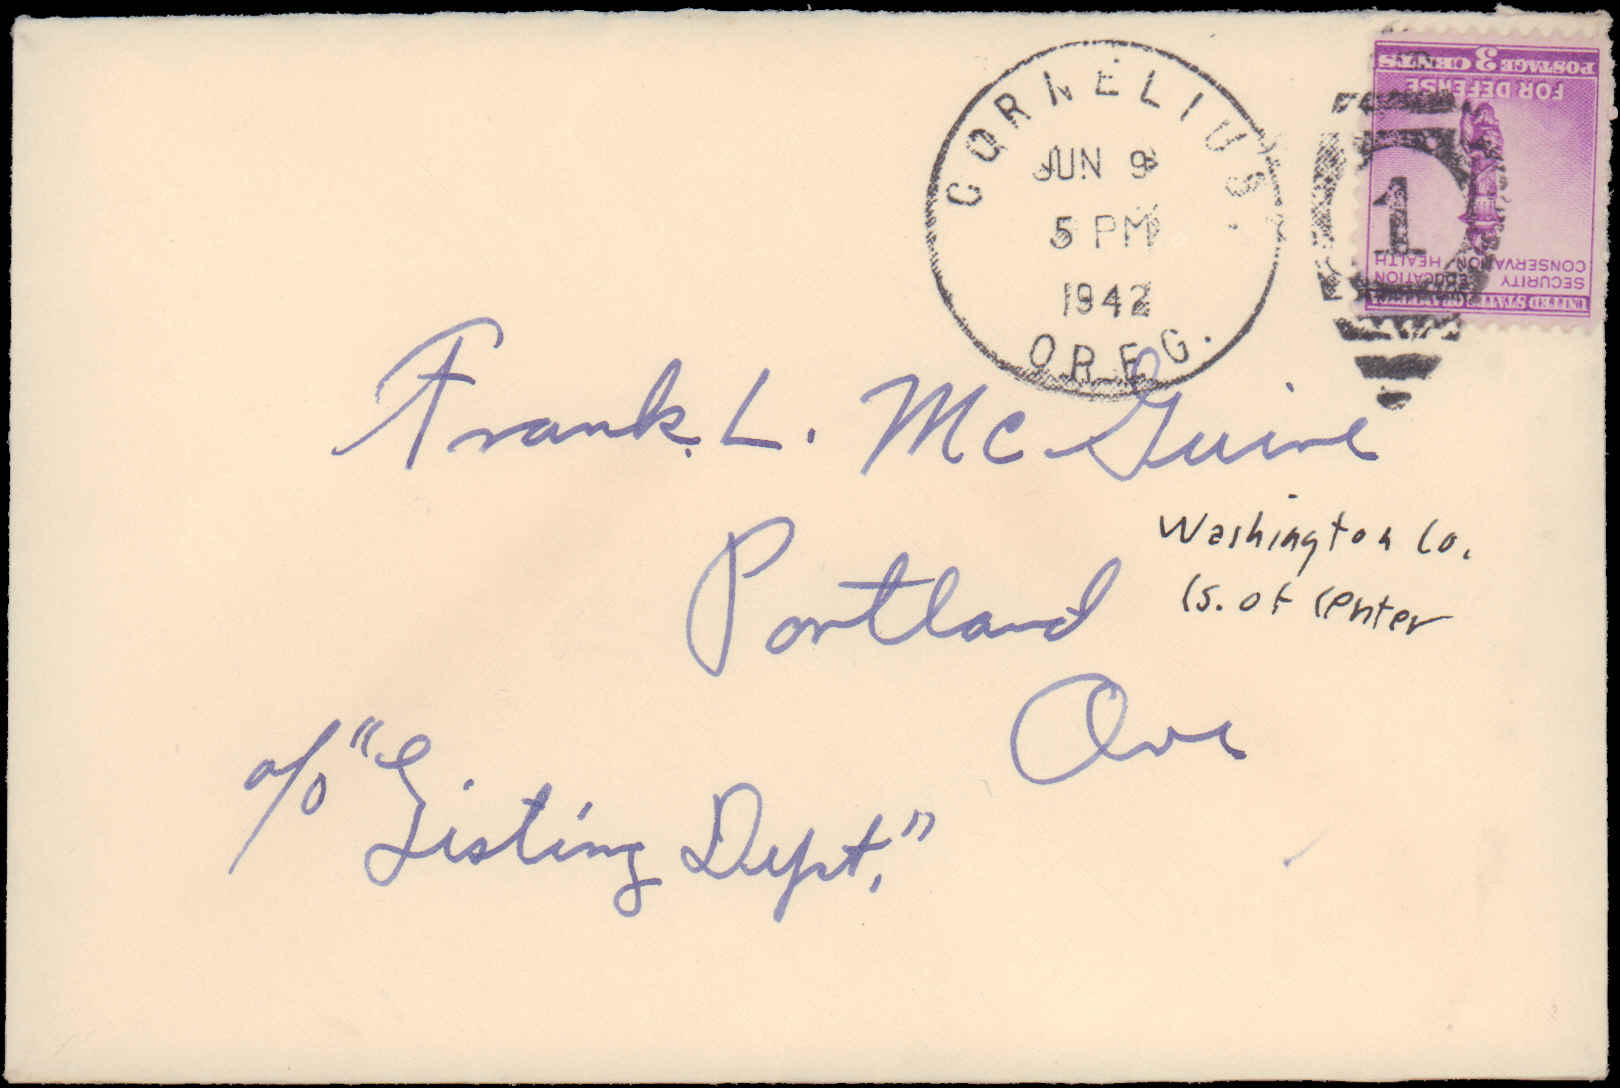 CORNELIUS,
JUN 9
5 PM
1942
OREG.
1
UNITED STATES OF AMERICA
SECURITY EDUCATION
CONSERVATION HEALTH
FOR DEFENSE
POSTAGE 3 CENTS
Frank L. McGuire
Portland
Ore
Washington Co.
(S. of center
c/o "Listing Dept."